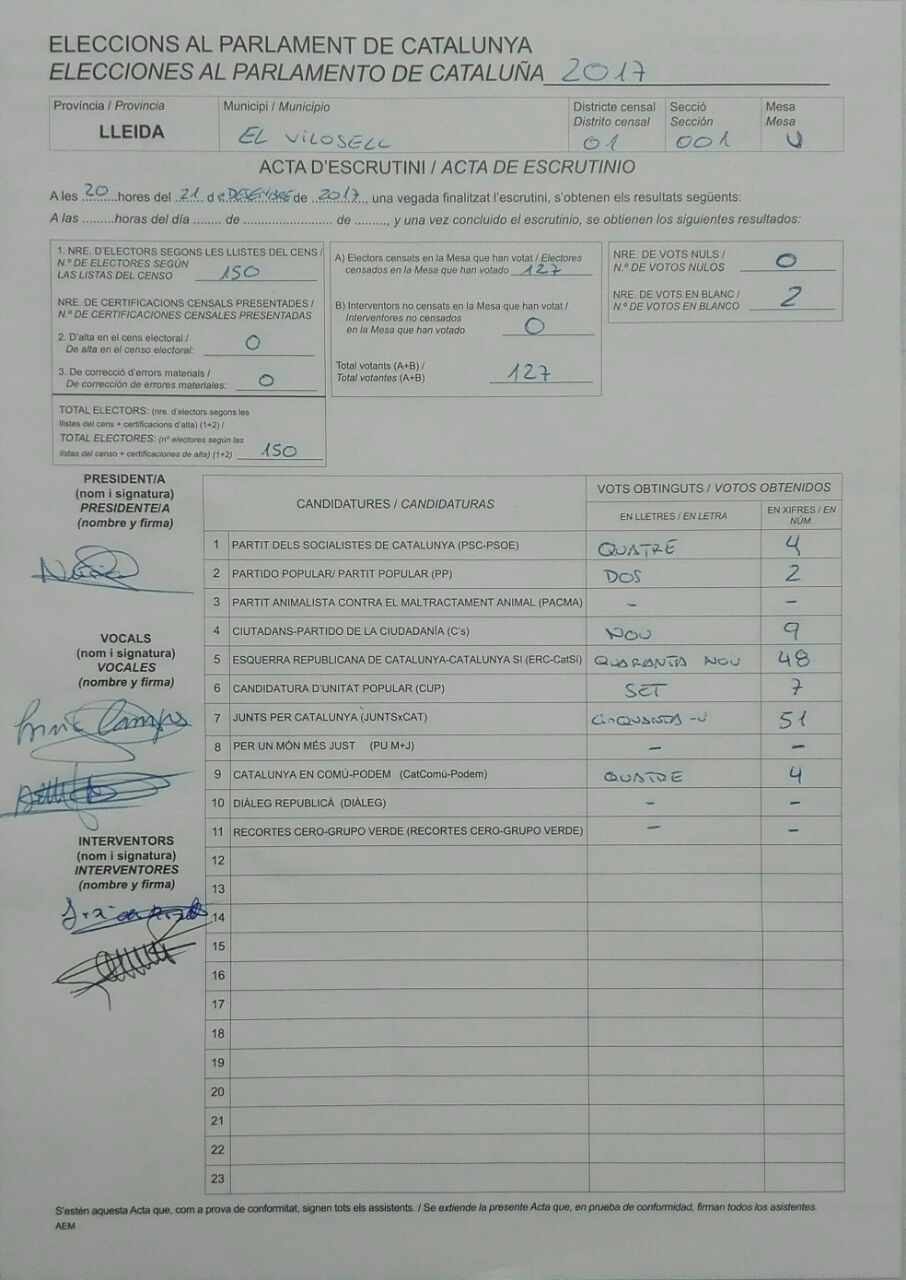 ELECCIONS AL PARLAMENT DE CATALUNYA
ELECCIONES AL PARLAMENTO DE CATALUÑA 2017
Província / Provincia
LLEIDA
Municipi / Municipio
EL VILOSELL
Districte censal
Distrito censal
01
Secció
Sección
001
Mesa
Mesa
U
ACTA D'ESCRUTINI / ACTA DE ESCRUTINIO
A les 20 hores del 21 d e DESEMBRE de 2017, una vegada finalitzat l'escrutini, s'obtenen els resultats següents:
A las ......... horas del día ........ de ......................... de ........., y una vez concluido el escrutinio, se obtienen los siguientes resultados:
1. NRE. D'ELECTORS SEGONS LES LLISTES DEL CENS /
N.º DE ELECTORES SEGÚN
LAS LISTAS DEL CENSO 150
NRE. DE CERTIFICACIONS CENSALS PRESENTADES /
N.º DE CERTIFICACIONES CENSALES PRESENTADAS
2. D'alta en el cens electoral /
De alta en el censo electoral: 0
3. De correcció d'errors materials /
De corrección de errores materiales: 0
TOTAL ELECTORS: (nre. d'electors segons les
llistes del cens + certificacions d'alta) (1+2) /
TOTAL ELECTORES: (nº electores según las
listas del censo + certificaciones de alta) (1+2) 150
A) Electors censats en la Mesa que han votat / Electores
censados en la Mesa que han votado 127
B) Interventors no censats en la Mesa que han votat /
Interventores no censados
en la Mesa que han votado 0
Total votants (A+B) /
Total votantes (A+B) 127
NRE. DE VOTS NULS /
N.º DE VOTOS NULOS 0
NRE. DE VOTS EN BLANC /
N.º DE VOTOS EN BLANCO 2
PRESIDENT/A
(nom i signatura)
PRESIDENTE/A
(nombre y firma)
VOCALS
(nom i signatura)
VOCALES
(nombre y firma)
INTERVENTORS
(nom i signatura)
INTERVENTORES
(nombre y firma)
CANDIDATURES / CANDIDATURAS
VOTS OBTINGUTS / VOTOS OBTENIDOS
EN LLETRES / EN LETRA
EN XIFRES / EN
NÚM.
1 PARTIT DELS SOCIALISTES DE CATALUNYA (PSC-PSOE) QUATRE 4
2 PARTIDO POPULAR/ PARTIT POPULAR (PP) DOS 2
3 PARTIT ANIMALISTA CONTRA EL MALTRACTAMENT ANIMAL (PACMA) - -
4 CIUTADANS-PARTIDO DE LA CIUDADANÍA (C's) NOU 9
5 ESQUERRA REPUBLICANA DE CATALUNYA-CATALUNYA SI (ERC-CatSí) QUARANTA NOU 48
6 CANDIDATURA D'UNITAT POPULAR (CUP) SET 7
7 JUNTS PER CATALUNYA (JUNTSxCAT) CINQUANTA-U 51
8 PER UN MÓN MÉS JUST (PU M+J) - -
9 CATALUNYA EN COMÚ-PODEM (CatComú-Podem) QUATRE 4
10 DIÀLEG REPUBLICÀ (DIÀLEG) - -
11 RECORTES CERO-GRUPO VERDE (RECORTES CERO-GRUPO VERDE) - -
12
13
14
15
16
17
18
19
20
21
22
23
S'estén aquesta Acta que, com a prova de conformitat, signen tots els assistents. / Se extiende la presente Acta que, en prueba de conformidad, firman todos los asistentes.
AEM